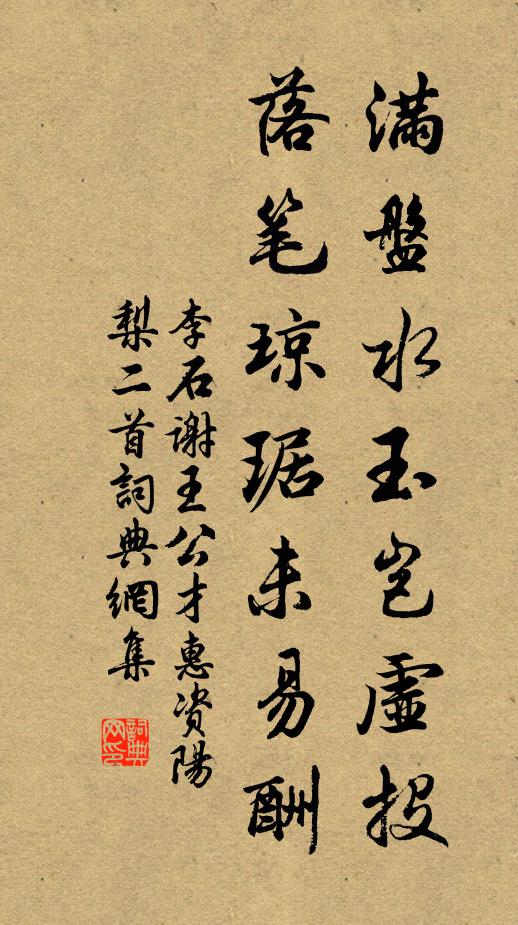 满盤水玉岂虛投
落笔琼琚未易酬
李石谢王公才惠资陽
梨二首詞典網集
詞典網印